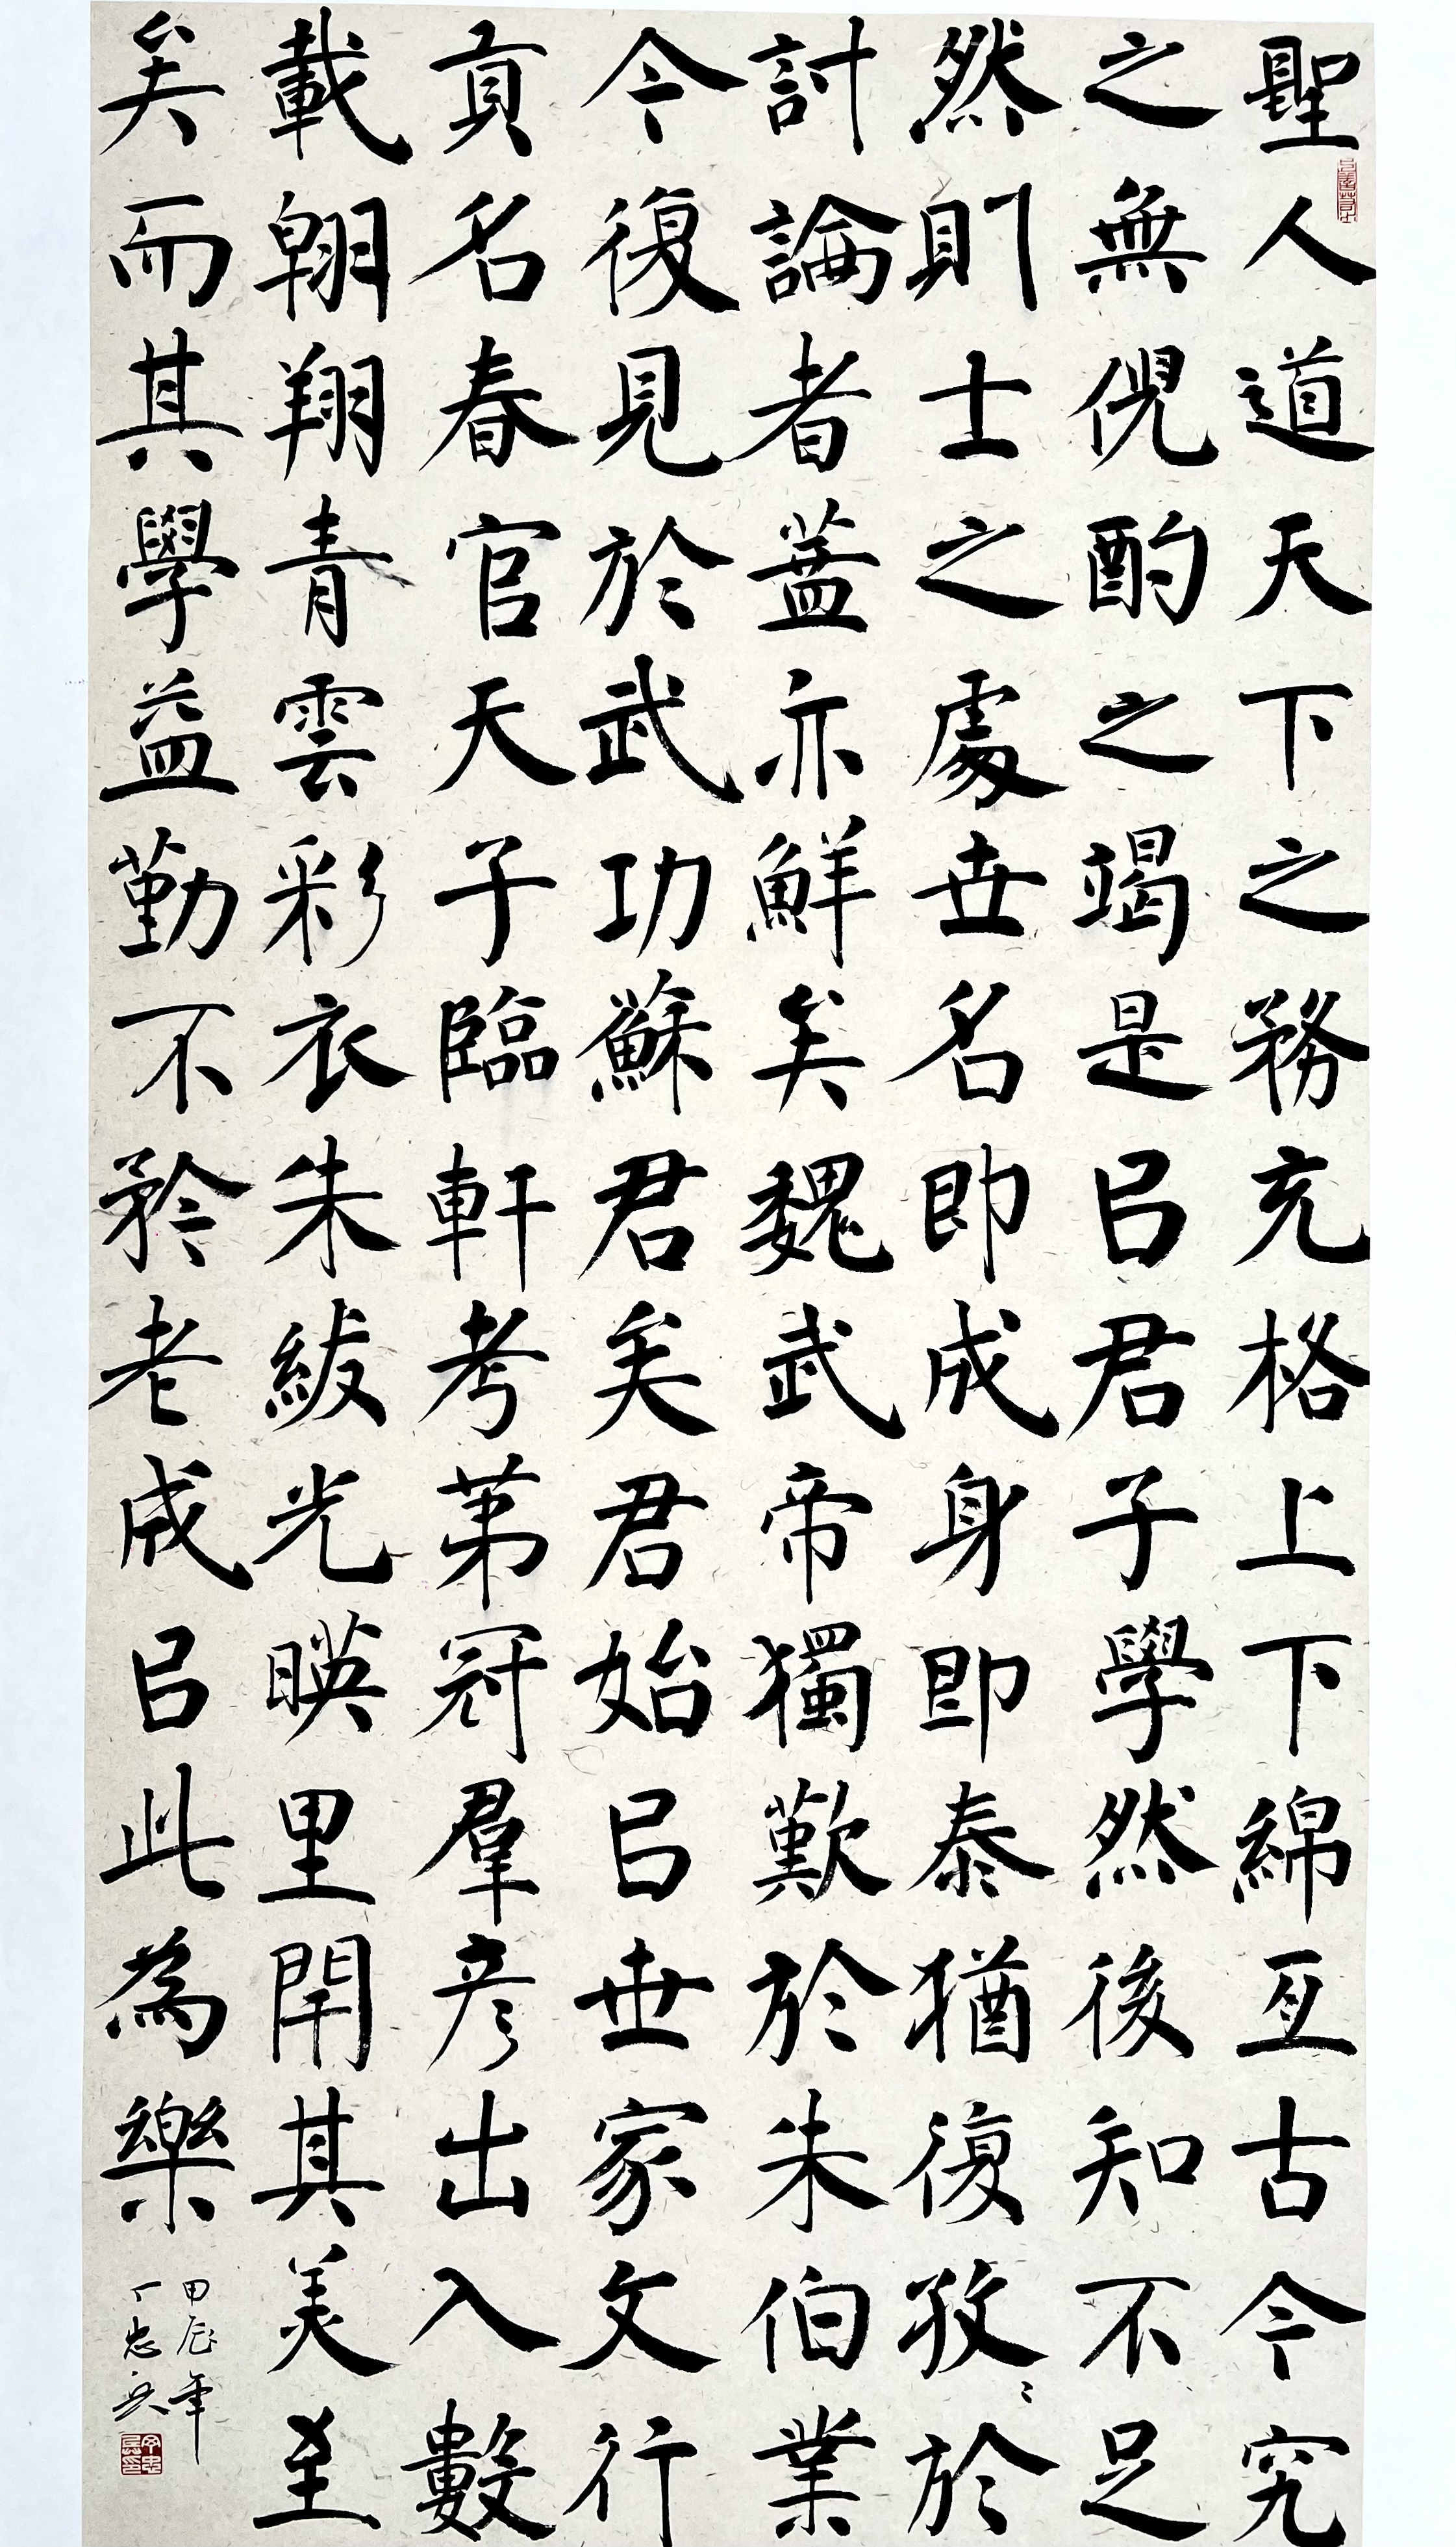 聖人道天下之務充格上下綿亙古今究
之無倪酌之竭是㠯君子學然後知不足
然則士之處世名即成身即泰猶復孜〻於
討論者蓋亦鮮矣魏武帝獨歎於朱伯業
今復見於武功蘇君矣君始㠯世家文行
貢名春官天子臨軒考第冠羣彥出入數
載翱翔青雲彩衣朱紱光暎里閈其美至
矣而其學益勤不矜老成㠯此為樂
甲辰年
丁忠兵